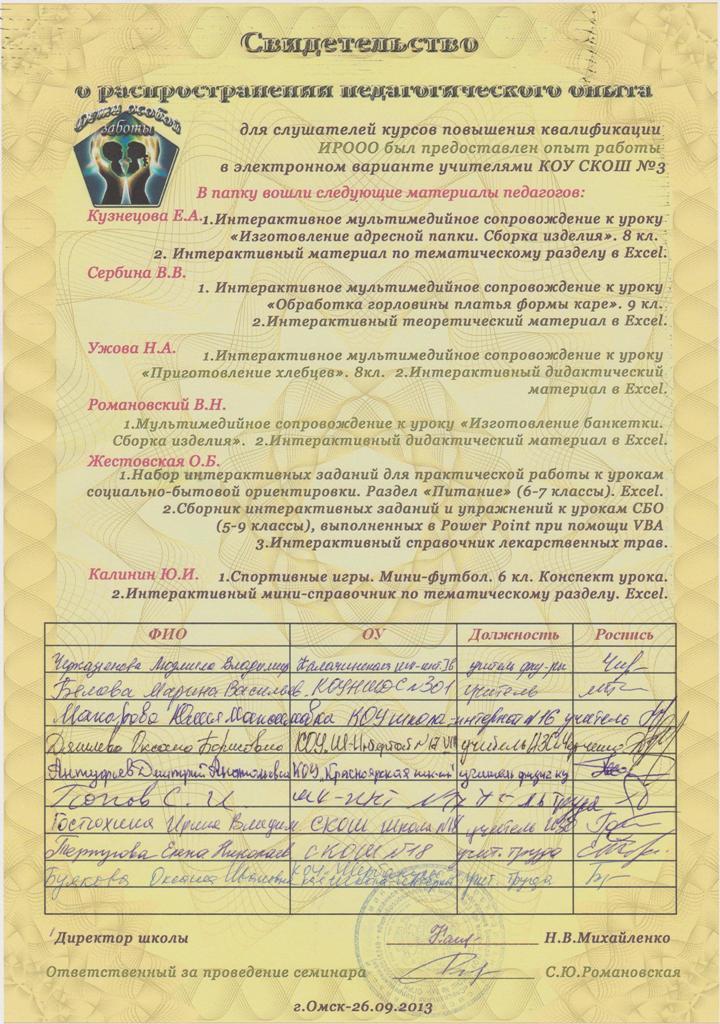 Свидетельство
о распространении педагогического опыта
Дети особой
заботы
для слушателей курсов повышения квалификации
ИРООО был предоставлен опыт работы
в электронном варианте учителями КОУ СКОШ №3
В папку вошли следующие материалы педагогов:
Кузнецова Е.А. 1.Интерактивное мультимедийное сопровождение к уроку
«Изготовление адресной папки. Сборка изделия». 8 кл.
2. Интерактивный материал по тематическому разделу в Excel.
Сербина В.В.
1. Интерактивное мультимедийное сопровождение к уроку
«Обработка горловины платья формы каре». 9 кл.
2.Интерактивный теоретический материал в Excel.
Ужова Н.А.
1.Интерактивное мультимедийное сопровождение к уроку
«Приготовление хлебцев». 8кл. 2.Интерактивный дидактический
материал в Excel.
Романовский В.Н.
1.Мультимедийное сопровождение к уроку «Изготовление банкетки.
Сборка изделия». 2.Интерактивный дидактический материал в Excel.
Жестовская О.Б.
1.Набор интерактивных заданий для практической работы к урокам
социально-бытовой ориентировки. Раздел «Питание» (6-7 классы). Excel.
2.Сборник интерактивных заданий и упражнений к урокам СБО
(5-9 классы), выполненных в Power Point при помощи VBA
3.Интерактивный справочник лекарственных трав.
Калинин Ю.И. 1.Спортивные игры. Мини-футбол. 6 кл. Конспект урока.
2.Интерактивный мини-справочник по тематическому разделу. Excel.
ФИО ОУ Должность Роспись
Людмила Владимир Калачинская учитель
Белова Марина Василь. КОУ №301 учитель
Макарова Юлия КОУ школа-интернат №16 учитель
Оксана Борисовна КОУ учитель
Дмитрий Анатольевич КОУ Красноярская учитель
Попов С. И труда
Ирина Владим СКОШ школа №18 учитель
Елена Николаев СКОШ №18 учит. труда
Буякова Оксана Ивановна учит. труда
Директор школы Н.В.Михайленко
Ответственный за проведение семинара С.Ю.Романовская
г.Омск-26.09.2013